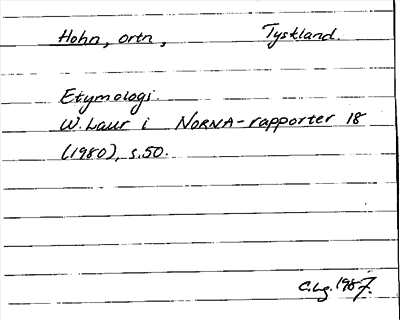 Hohn, ortn, Tyskland.
Etymologi.
W. Laur i NORNA-rapporter 18
(1980), s.50.
C.Lg. 1987.